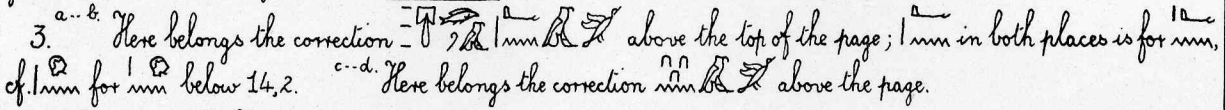 3. a--b. Here belongs the correction above the top of the page; in both places is for ,
cf. for below 14,2. c--d. Here belongs the correction above the page.